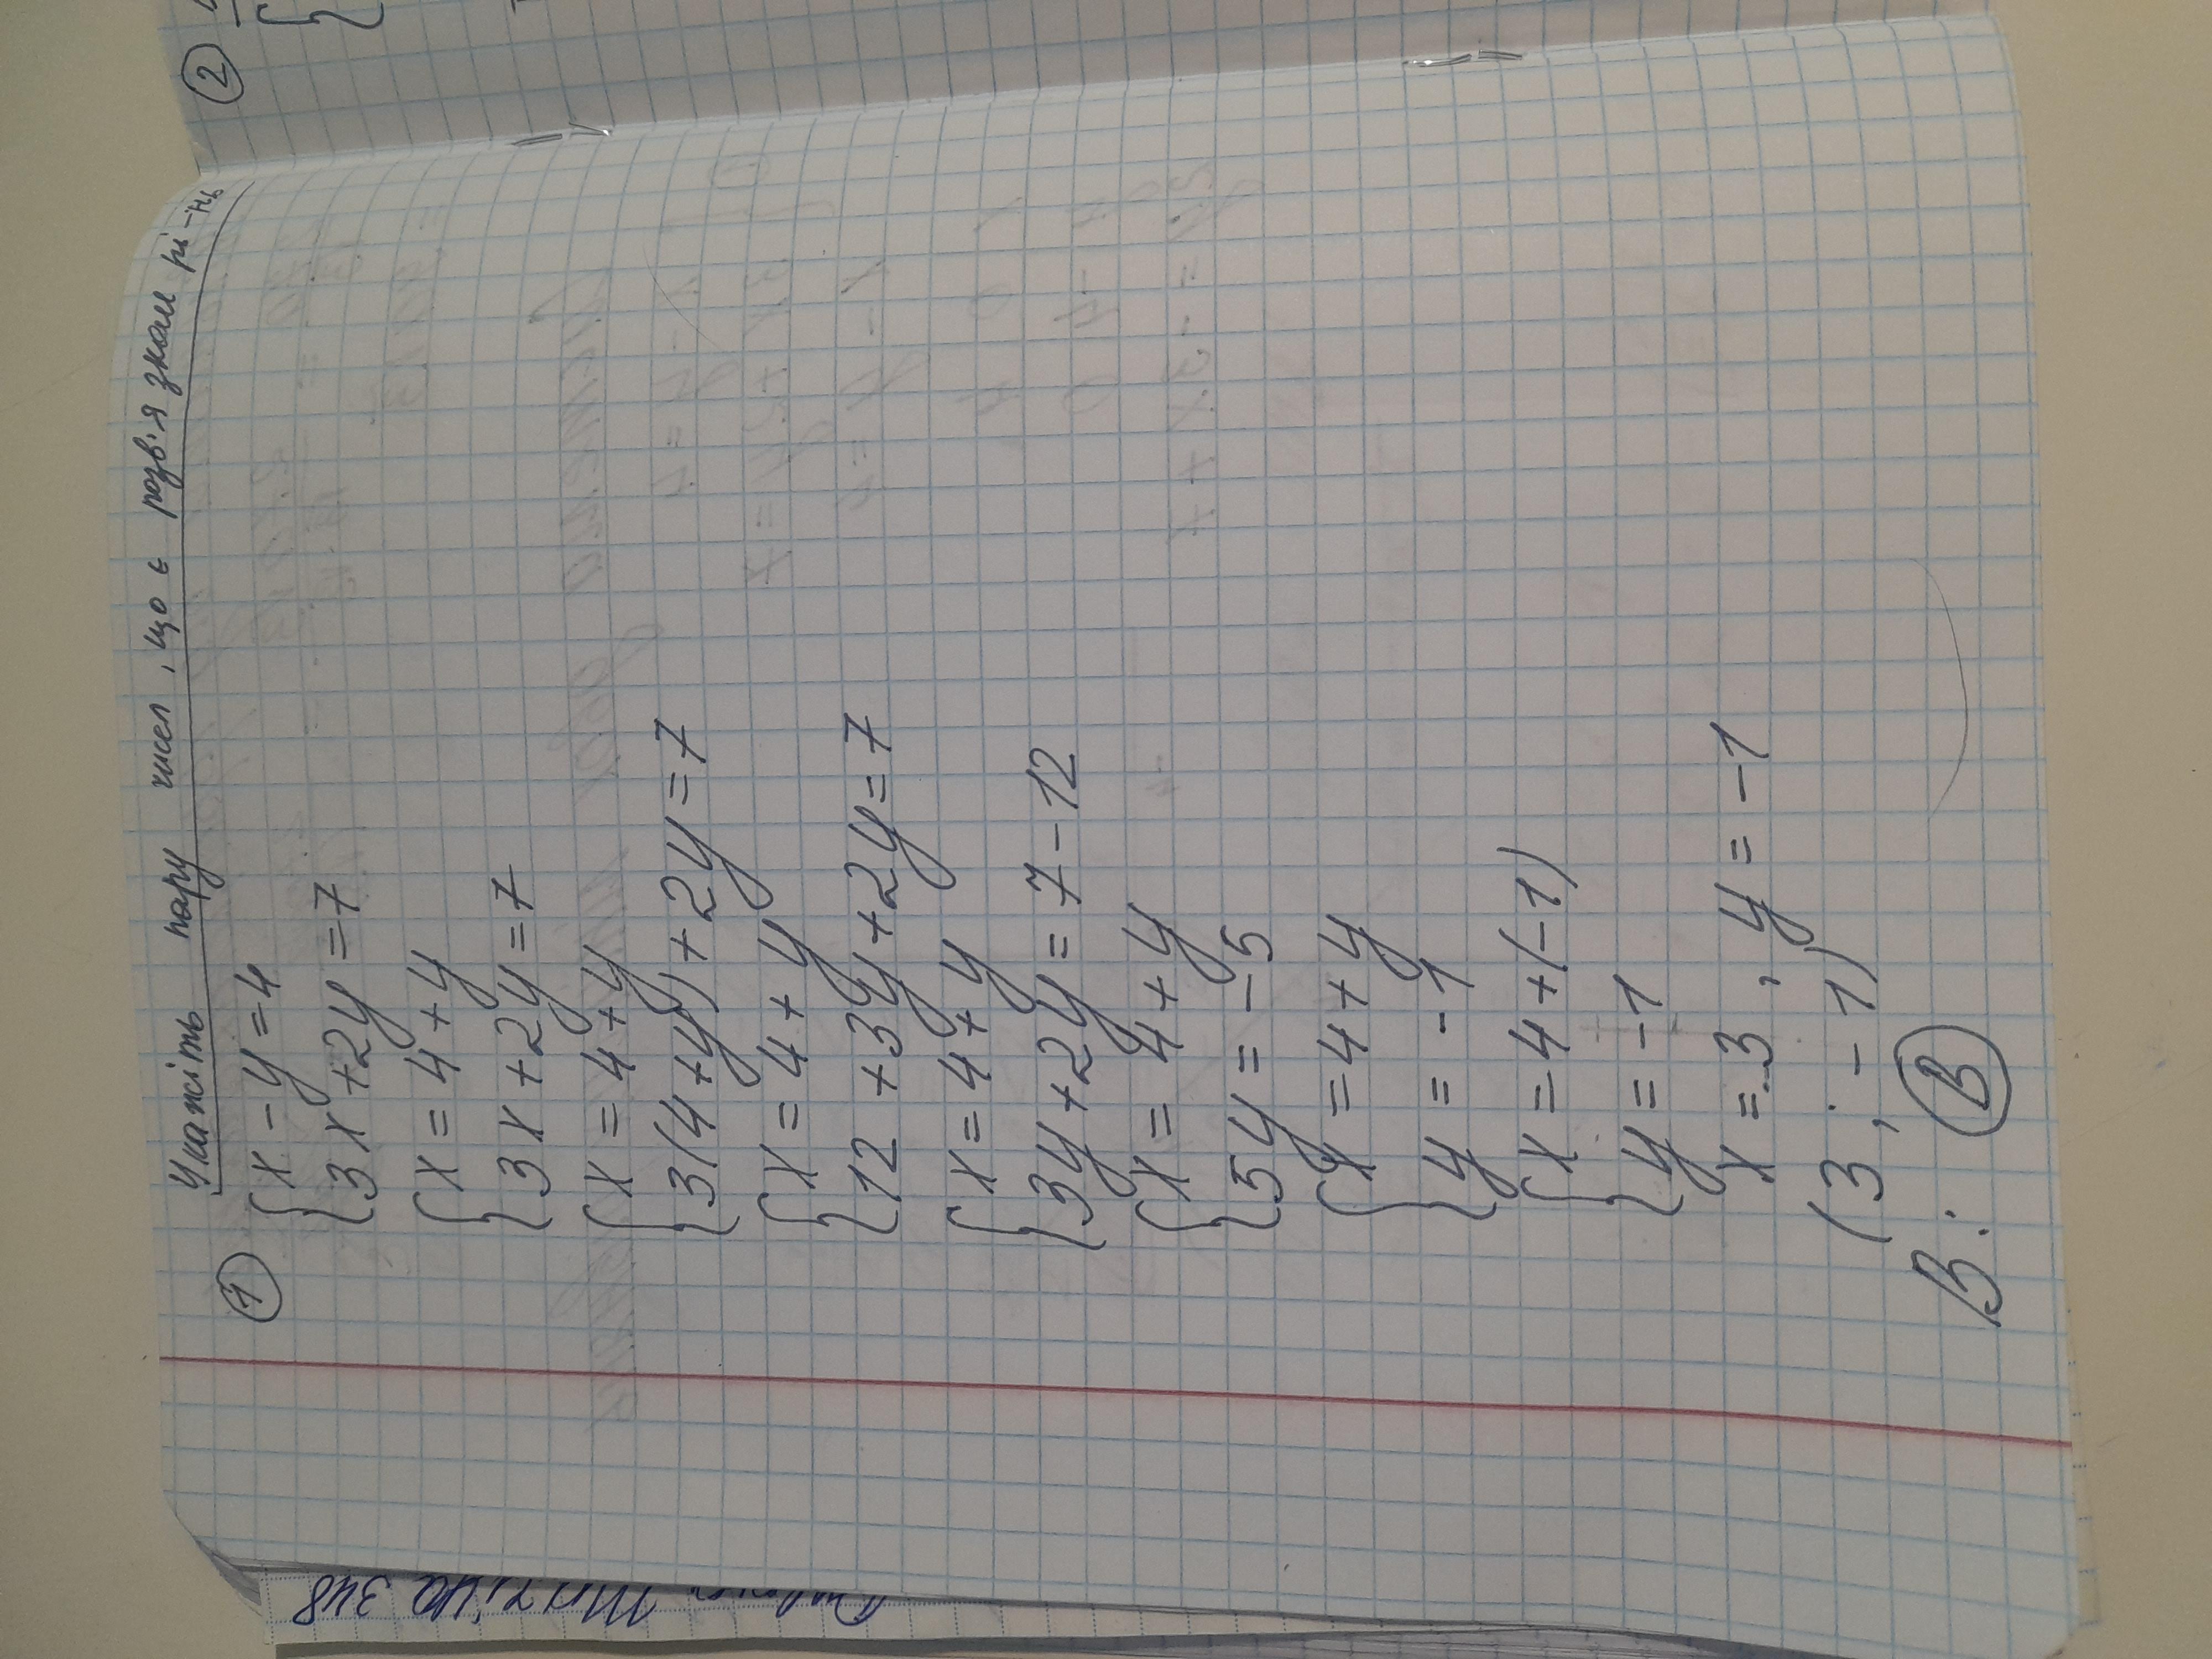 ① Укажіть пару чисел, що є розв'язком рі-нь
{x - y = 4
{3x + 2y = 7
{x = 4 + y
{3x + 2y = 7
{x = 4 + y
{3(4 + y) + 2y = 7
{x = 4 + y
{12 + 3y + 2y = 7
{x = 4 + y
{3y + 2y = 7 - 12
{x = 4 + y
{5y = -5
{x = 4 + y
{y = -1
{x = 4 + (-1)
{y = -1
x = 3, y = -1
(3; -1)
В: Ⓑ
②
348